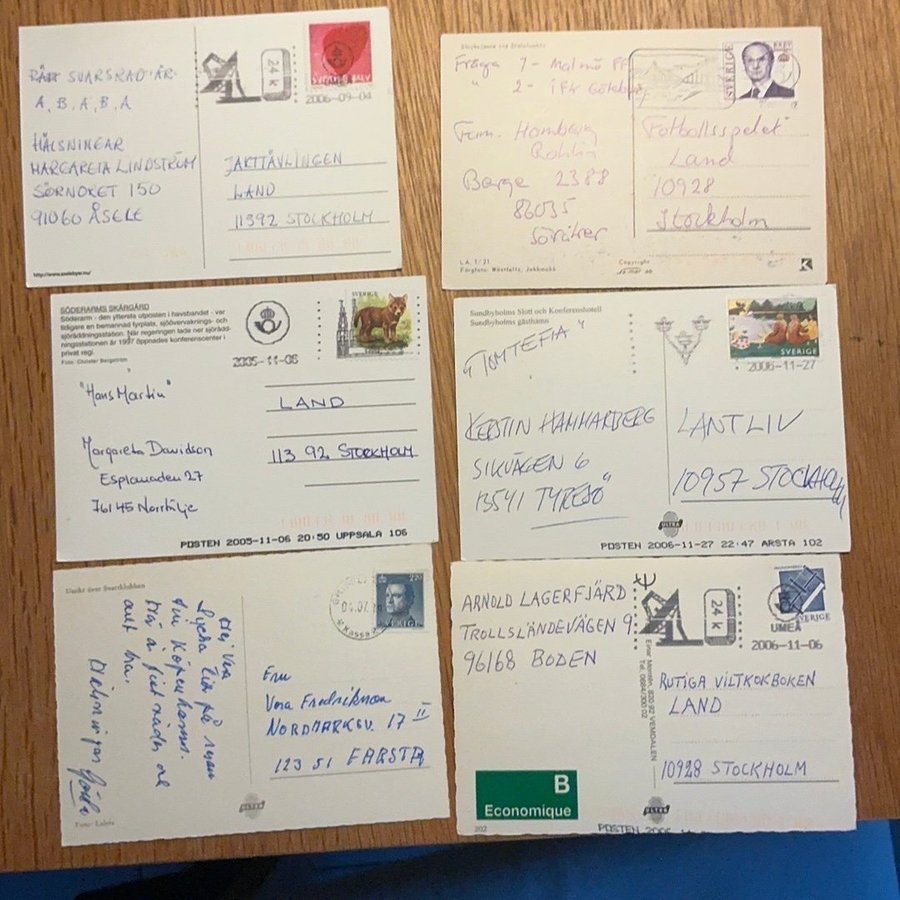 RÄTT SVARSRAD ÄR
A, B, A, B, A
HÄLSNINGAR
MARGARETA LINDSTRÖM
SÖRNORET 150
91060 ÅSELE
http://www.aselebyar.nu/
24 k
2006-09-04
JAKTTÄVLINGEN
LAND
11392 STOCKHOLM
Fråga 1 - Malmö FF
" 2 - iFK Göteborg
Fam. Homberg
Berge 2388
86035
Söråker
L.A. 1/21
Färgfoto: Westfeltz, Jokkmokk
SVERIGE BREV
Fotbollsspelet
Land
10928
Stockholm
Copyright
K
SÖDERARMS SKÄRGÅRD
Söderarm - den yttersta utposten i havsbandet - var
tidigare en bemannad fyrplats, sjöövervaknings- och
sjöräddningsstation. När regeringen lade ner sjörädd-
ningsstationen år 1997 öppnades konferenscenter i
privat regi.
Foto: Christer Bergström
"Hans Martin"
Margareta Davidson
Esplanaden 27
76145 Norrtälje
SVERIGE
2005-11-06
LAND
113 92 STOCKHOLM
POSTEN 2005-11-06 20:50 UPPSALA 106
Sundbyholms Slott och Konferenshotell
Sundbyholms gästhamn
"TOMTEFIA"
KERSTIN HAMMARBERG
SIKVÄGEN 6
13541 TYRESÖ
SVERIGE
2006-11-27
LANTLIV
10957 STOCKHOLM
ULTRA
POSTEN 2006-11-27 22:47 ARSTA 102
Utsikt över Svartklubben
Hej Vera
Här är
allt bra.
Hälsningar
2.20
SVERIGE
Kassa
Fru
Vera Fredriksson
NORDMARKSV. 17 II
123 51 FARSTA
ULTRA
ARNOLD LAGERFJÄRD
TROLLSLÄNDEVÄGEN 9
96168 BODEN
24 k
SVERIGE
UMEÅ
2006-11-06
RUTIGA VILTKOKBOKEN
LAND
10928 STOCKHOLM
B
Economique
202
ULTRA